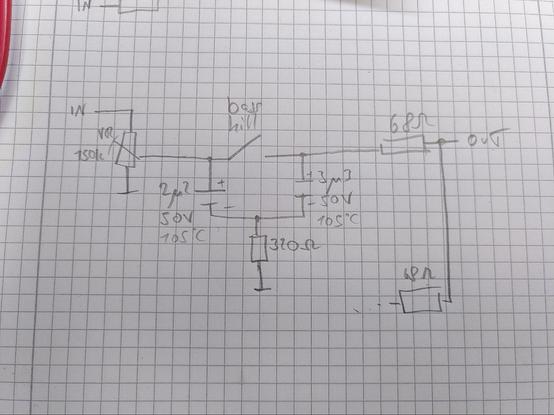 IN
IN
VR
150k
bass
kill
68Ω
OUT
2µ2
+
-
50V
105°C
+ 3µ3
- 50V
105°C
320Ω
68Ω